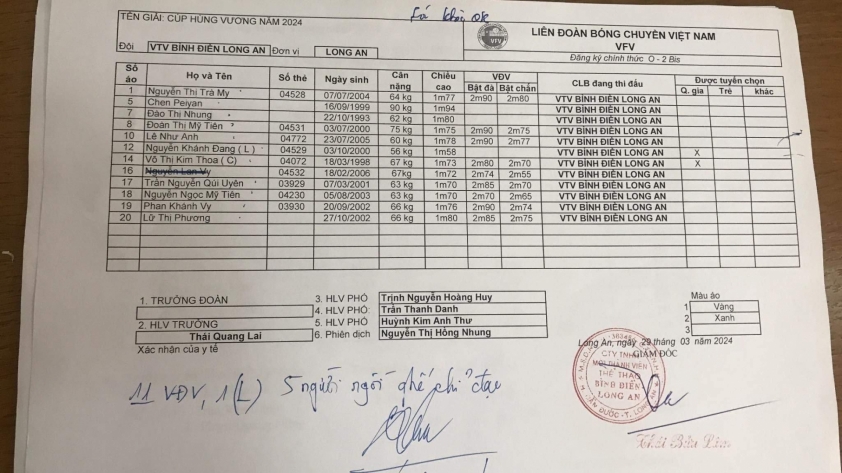 TÊN GIẢI: CÚP HÙNG VƯƠNG NĂM 2024
LIÊN ĐOÀN BÓNG CHUYỀN VIỆT NAM
VFV
Đăng ký chính thức O - 2 Bis
Đội VTV BÌNH ĐIỀN LONG AN Đơn vị LONG AN
Số áo Họ và Tên Số thẻ Ngày sinh Cân nặng Chiều cao VĐV CLB đang thi đấu Được tuyển chọn
Bật đà Bật chắn Q. gia Trẻ khác
1 Nguyễn Thị Trà My 04528 07/07/2004 64 kg 1m77 2m90 2m80 VTV BÌNH ĐIỀN LONG AN
5 Chen Peiyan 16/09/1999 90 kg 1m94 VTV BÌNH ĐIỀN LONG AN
7 Đào Thị Nhung 22/10/1993 62 kg 1m80 VTV BÌNH ĐIỀN LONG AN
8 Đoàn Thị Mỹ Tiên 04531 03/07/2000 75 kg 1m75 2m90 2m75 VTV BÌNH ĐIỀN LONG AN
10 Lê Như Anh 04772 23/07/2005 60 kg 1m78 2m90 2m77 VTV BÌNH ĐIỀN LONG AN
12 Nguyễn Khánh Đang ( L ) 04529 03/10/2000 56 kg 1m58 VTV BÌNH ĐIỀN LONG AN X
14 Võ Thị Kim Thoa ( C ) 04072 18/03/1998 67 kg 1m73 2m80 2m70 VTV BÌNH ĐIỀN LONG AN X
16 Nguyễn Lan Vy 04532 18/02/2006 67kg 1m72 2m74 2m55 VTV BÌNH ĐIỀN LONG AN
17 Trần Nguyễn Qúi Uyên 03929 07/03/2001 63 kg 1m70 2m85 2m70 VTV BÌNH ĐIỀN LONG AN
18 Nguyễn Ngọc Mỹ Tiên 04230 05/08/2003 63 kg 1m70 2m70 2m65 VTV BÌNH ĐIỀN LONG AN
19 Phan Khánh Vy 03930 20/09/2002 66 kg 1m76 2m90 2m74 VTV BÌNH ĐIỀN LONG AN
20 Lữ Thị Phương 27/10/2002 66 kg 1m80 2m85 2m75 VTV BÌNH ĐIỀN LONG AN
1. TRƯỞNG ĐOÀN
2. HLV TRƯỞNG
Thái Quang Lai
Xác nhận của y tế
3. HLV PHÓ Trịnh Nguyễn Hoàng Huy
4. HLV PHÓ: Trần Thanh Danh
5. HLV PHÓ Huỳnh Kim Anh Thư
6. Phiên dịch Nguyễn Thị Hồng Nhung
Màu áo
1 Vàng
2 Xanh
3
Long An, ngày 29 tháng 03 năm 2024
GIÁM ĐỐC
CTY TNHH
MỘT THÀNH VIÊN
THỂ THAO
BÌNH ĐIỀN
LONG AN
11 VĐV, 1 (L) 5 người ngồi ghế chỉ đạo